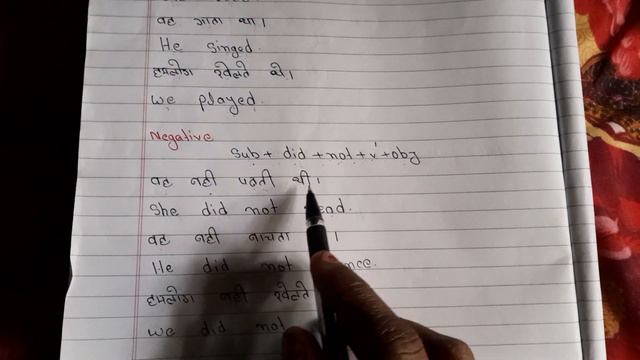 वह गाता था।
He singed.
हमलोग खेलते थे।
We played.
Negative
Sub + did + not + v' + obj
वह नही पढ़ती थी।
She did not
वह नही नाचता
He did not
हमलोग नही खेलते
We did not